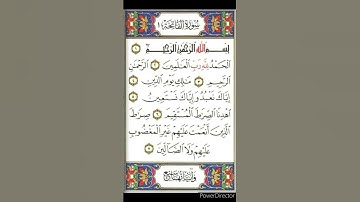 سُورَةُ الفَاتِحَة
بِسْمِ اللَّهِ الرَّحْمَٰنِ الرَّحِيمِ ١
الْحَمْدُ لِلَّهِ رَبِّ الْعَالَمِينَ ٢ الرَّحْمَٰنِ
الرَّحِيمِ ٣ مَالِكِ يَوْمِ الدِّينِ ٤
إِيَّاكَ نَعْبُدُ وَإِيَّاكَ نَسْتَعِينُ ٥
اهْدِنَا الصِّرَاطَ الْمُسْتَقِيمَ ٦ صِرَاطَ
الَّذِينَ أَنْعَمْتَ عَلَيْهِمْ غَيْرِ الْمَغْضُوبِ
عَلَيْهِمْ وَلَا الضَّالِّينَ ٧
PowerDirector